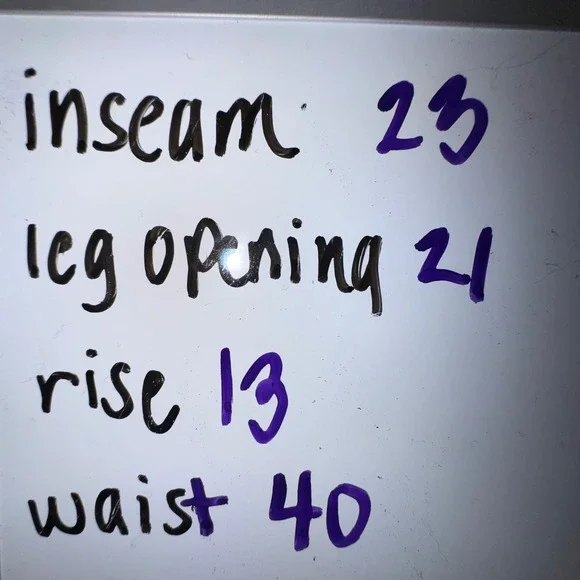 inseam 23
leg opening 21
rise 13
waist 40